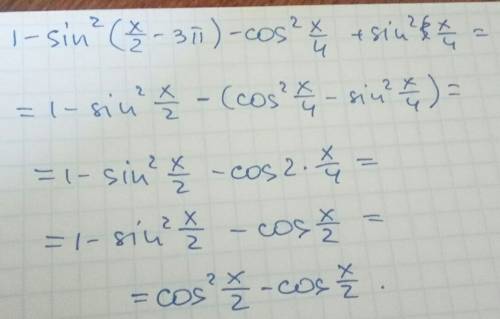 1 - sin² (x/2 - 3π) - cos² x/4 + sin² x/4 =
= 1 - sin² x/2 - (cos² x/4 - sin² x/4) =
= 1 - sin² x/2 - cos 2 · x/4 =
= 1 - sin² x/2 - cos x/2 =
= cos² x/2 - cos x/2 .